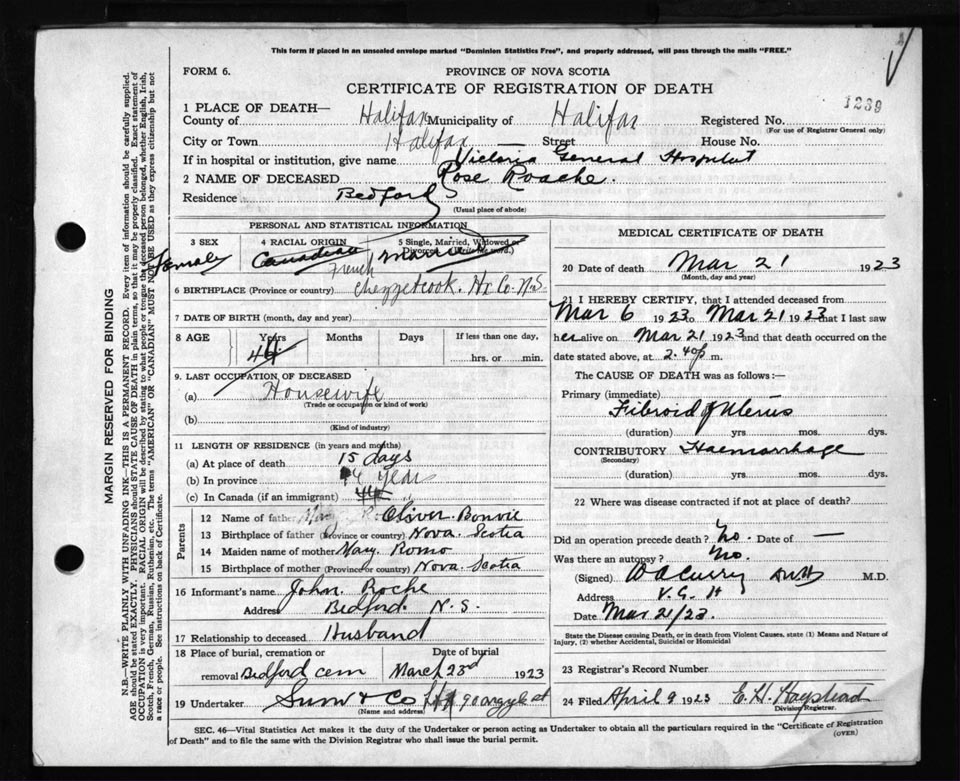 This form if placed in an unsealed envelope marked "Dominion Statistics Free", and properly addressed, will pass through the mails "FREE."
FORM 6.
PROVINCE OF NOVA SCOTIA
CERTIFICATE OF REGISTRATION OF DEATH
1239
1 PLACE OF DEATH—
County of Halifax Municipality of Halifax Registered No.
(For use of Registrar General only)
City or Town Halifax Street House No.
If in hospital or institution, give name Victoria General Hospital
2 NAME OF DECEASED Rose Roache.
Residence Bedford
(Usual place of abode)
PERSONAL AND STATISTICAL INFORMATION
3 SEX 4 RACIAL ORIGIN 5 Single, Married, Widowed or Divorced (Write the word.)
Female Canadian French Married
6 BIRTHPLACE (Province or country) Chezzetcook. Hx Co. N.S.
7 DATE OF BIRTH (month, day and year)
8 AGE Years Months Days If less than one day,
44 hrs. or min.
9. LAST OCCUPATION OF DECEASED
(a) Housewife
(Trade or occupation or kind of work)
(b)
(Kind of industry)
11 LENGTH OF RESIDENCE (in years and months)
(a) At place of death 15 days
(b) In province 44 years
(c) In Canada (if an immigrant) 44 "
Parents
12 Name of father Oliver Bonvie
13 Birthplace of father (Province or country) Nova. Scotia
14 Maiden name of mother Mary. Romo
15 Birthplace of mother (Province or country) Nova. Scotia
16 Informant's name John. Roche
Address Bedford. N.S.
17 Relationship to deceased Husband
18 Place of burial, cremation or removal Date of burial
Bedford cem March 23rd 1923
19 Undertaker Snow & Co 90 argyle st
(Name and address)
MEDICAL CERTIFICATE OF DEATH
20 Date of death Mar 21 1923
(Month, day and year)
21 I HEREBY CERTIFY, that I attended deceased from
Mar 6 1923 to Mar 21 1923 that I last saw
her alive on Mar 21 1923 and that death occurred on the
date stated above, at 2.40 p m.
The CAUSE OF DEATH was as follows:—
Primary (immediate)
Fibroid of Uterus
(duration) yrs mos. dys.
CONTRIBUTORY Haemorrhage
(Secondary)
(duration) yrs. mos. dys.
22 Where was disease contracted if not at place of death?
Did an operation precede death? No. Date of —
Was there an autopsy? No.
(Signed) W A Curry M.D.
Address V. G. H
Date Mar 21/23.
State the Disease causing Death, or in death from Violent Causes, state (1) Means and Nature of Injury, (2) whether Accidental, Suicidal or Homicidal
23 Registrar's Record Number
24 Filed April 9 1923 E. H.
Division Registrar.
SEC. 46—Vital Statistics Act makes it the duty of the Undertaker or person acting as Undertaker to obtain all the particulars required in the "Certificate of Registration
of Death" and to file the same with the Division Registrar who shall issue the burial permit.
(OVER)
MARGIN RESERVED FOR BINDING
N.B.—WRITE PLAINLY WITH UNFADING INK—THIS IS A PERMANENT RECORD. Every item of information should be carefully supplied.
AGE should be stated EXACTLY. PHYSICIANS should STATE CAUSE OF DEATH in plain terms, so that it may be properly classified. Exact statement of
OCCUPATION is very important. RACIAL ORIGIN will be described by stating to what people or tongue the deceased person belonged, whether English, Irish,
Scotch, French, German, Russian, Ruthenian, etc. The terms "AMERICAN" OR "CANADIAN" MUST NOT BE USED as they express citizenship but not
a race or people. See instructions on back of Certificate.